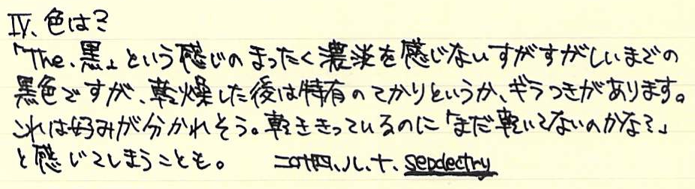 IV、色は?
「The、黒」という感じのまったく濃淡を感じないすがすがしいまでの
黒色ですが、乾燥した後は特有のてかりというか、ギラつきがあります。
これは好みが分かれそう。乾ききっているのに「まだ乾いてないのかな?」
と感じてしまうことも。